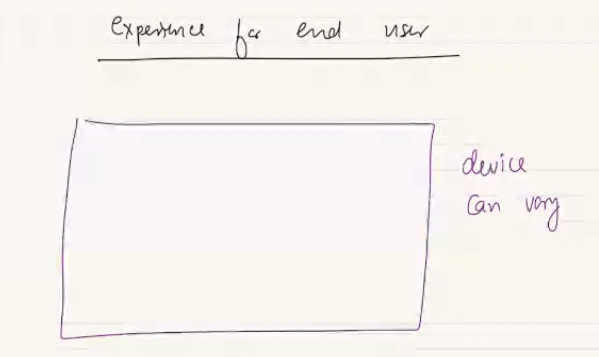 experience for end user
device
can vary